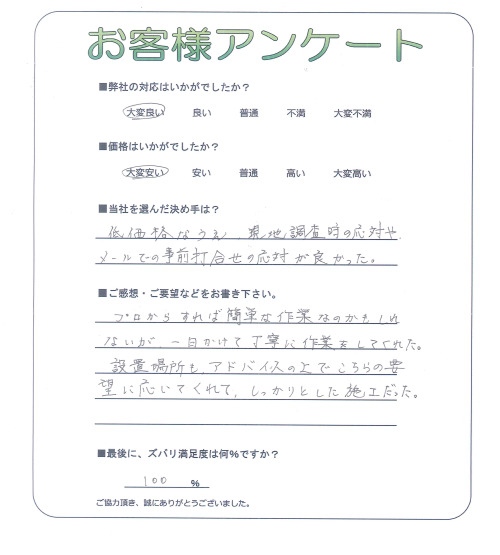 お客様アンケート
■弊社の対応はいかがでしたか？
大変良い 良い 普通 不満 大変不満
■価格はいかがでしたか？
大変安い 安い 普通 高い 大変高い
■当社を選んだ決め手は？
低価格なうえ、現地調査時の応対や、
メールでの事前打合せの応対が良かった。
■ご感想・ご要望などをお書き下さい。
プロからすれば簡単な作業なのかもしれ
ないが、一日かけて丁寧に作業をしてくれた。
設置場所も、アドバイスの上でこちらの要
望に応いてくれて、しっかりとした施工だった。
■最後に、ズバリ満足度は何%ですか？
100 %
ご協力頂き、誠にありがとうございました。